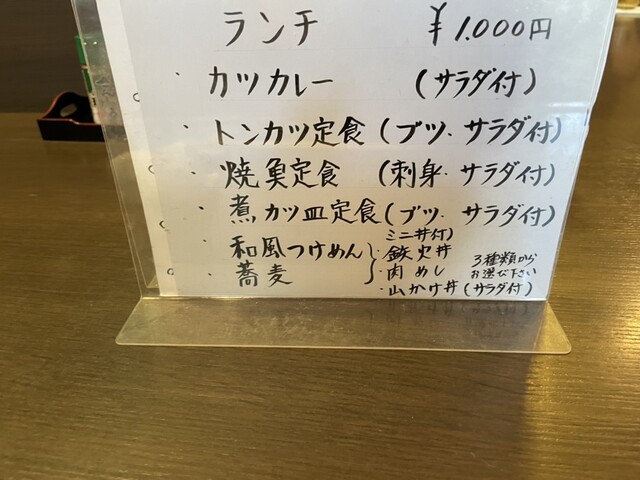 ランチ ¥1.000円
・カツカレー (サラダ付)
・トンカツ定食 (ブツ・サラダ付)
・焼魚定食 (刺身・サラダ付)
・煮カツ皿定食 (ブツ・サラダ付)
ミニ丼付)
・和風つけめん ・鉄火丼 3種類から
・蕎麦 ・肉めし お選び下さい
・山かけ丼 (サラダ付)